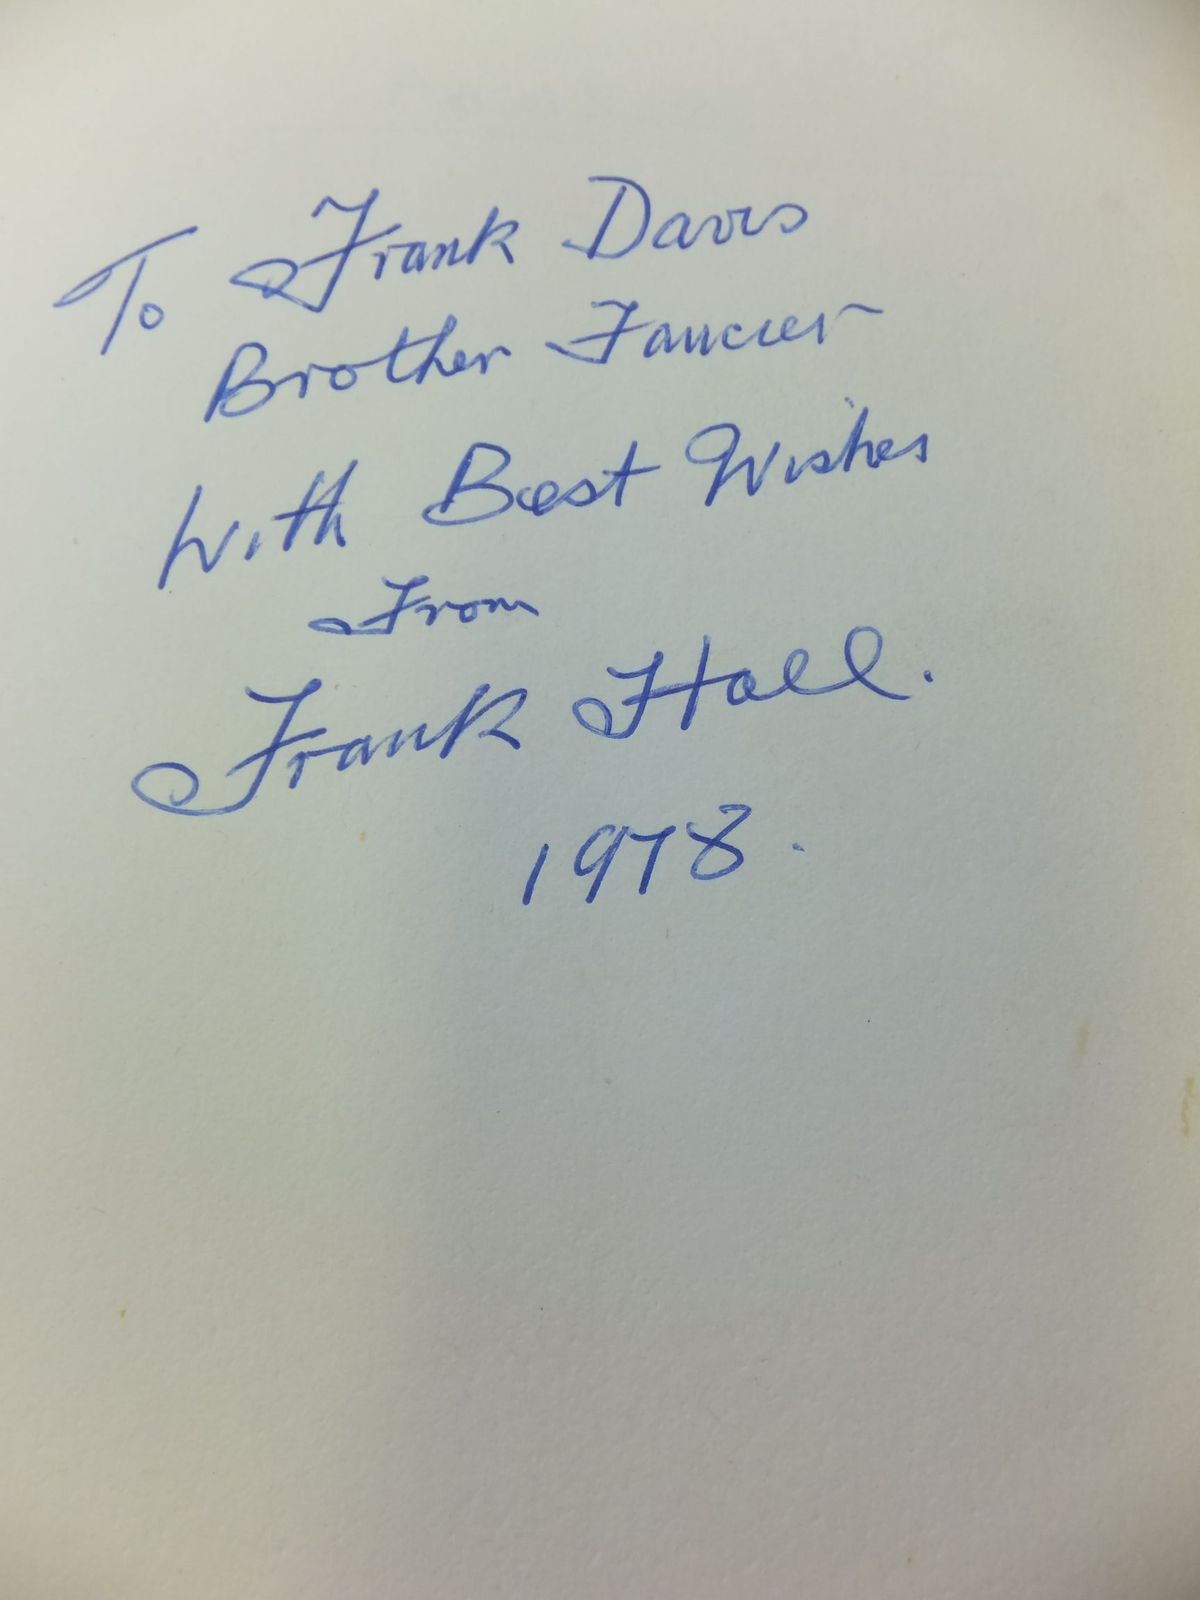 To Frank Davis
Brother Fancier
With Best Wishes
From
Frank Hall.
1978.